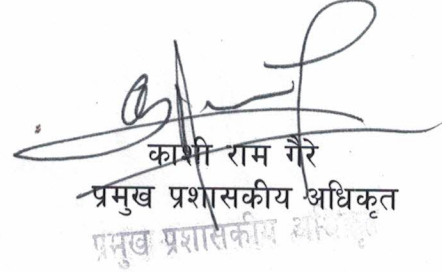 काशी राम गैरे
प्रमुख प्रशासकीय अधिकृत
प्रमुख प्रशासकीय